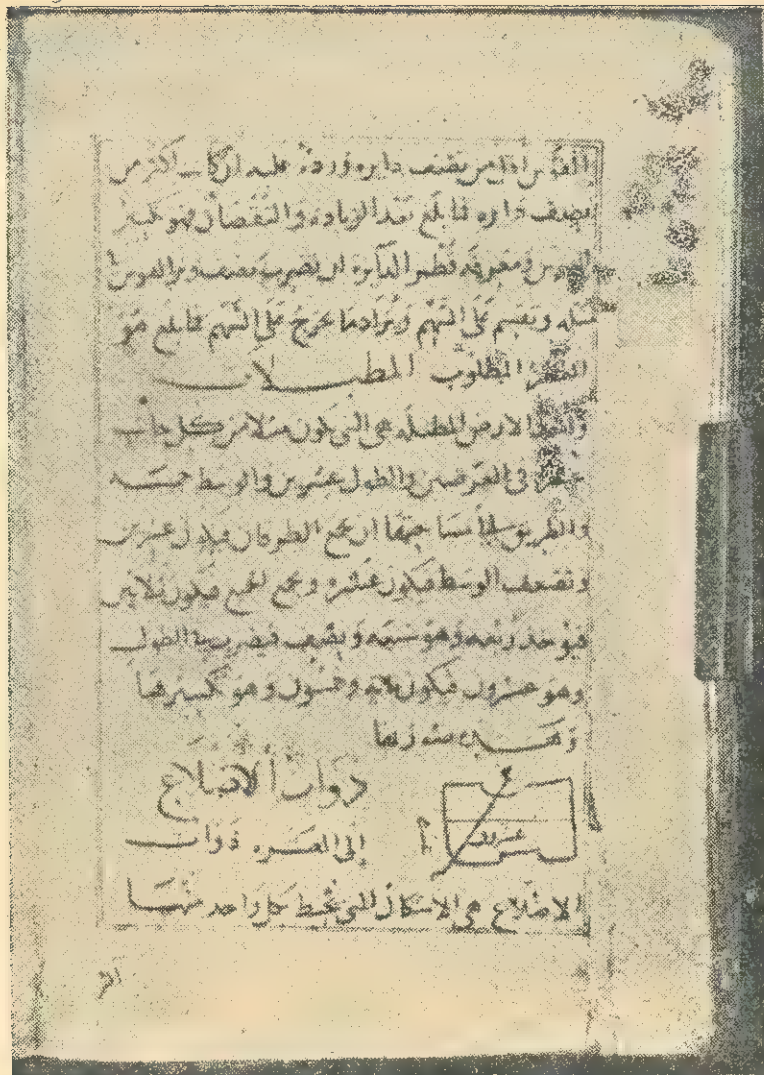 القوس اقل من نصف دايره وزدته عليه ان كانت اكثر من
نصف دايره فما بلغ بعد الزيادة والنقصان فهو
القوس ومعرفة قطر الدايرة ان تضرب نصف وتر القوس
مثله ويقسم على السهم ويزاد ما يخرج على السهم فما بلغ هو
القطر المطلوب المطبلات
الارض المطبله هي التي تكون مثلا من كل جانب
في العرض والطول عشرين والوسط خمسه
والطريق مساحتها ان يجمع الطرفان عشرين
وتضعف الوسط فيكون عشره ويجمع الجميع فيكون ثلاثين
فيوخذ ربعه وهو سبعه ونصف فيضرب في الطول
وهو عشرون فيكون مايه وخمسون وهو تكسيرها
وهذه صورتها
ذوات الاضلاع
عشرون
الى العشره ذوات
الاضلاع هي الاشكال التي يحيط بكل واحد منها